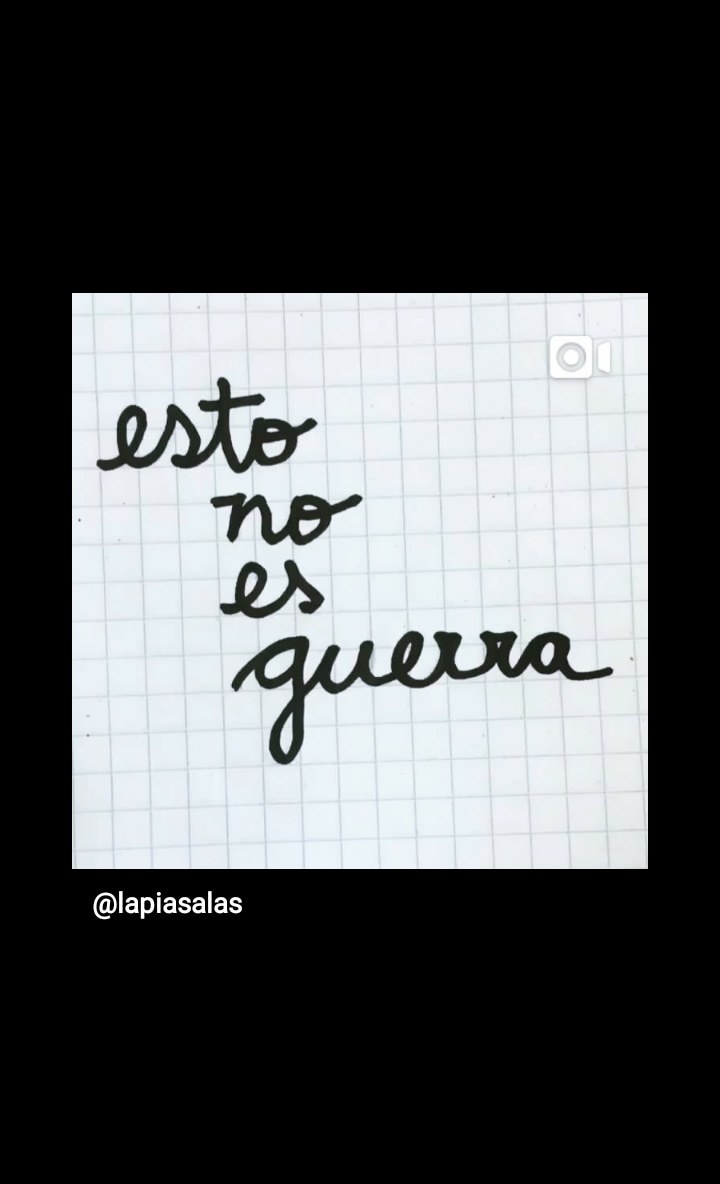 esto
no
es
guerra
@lapiasalas